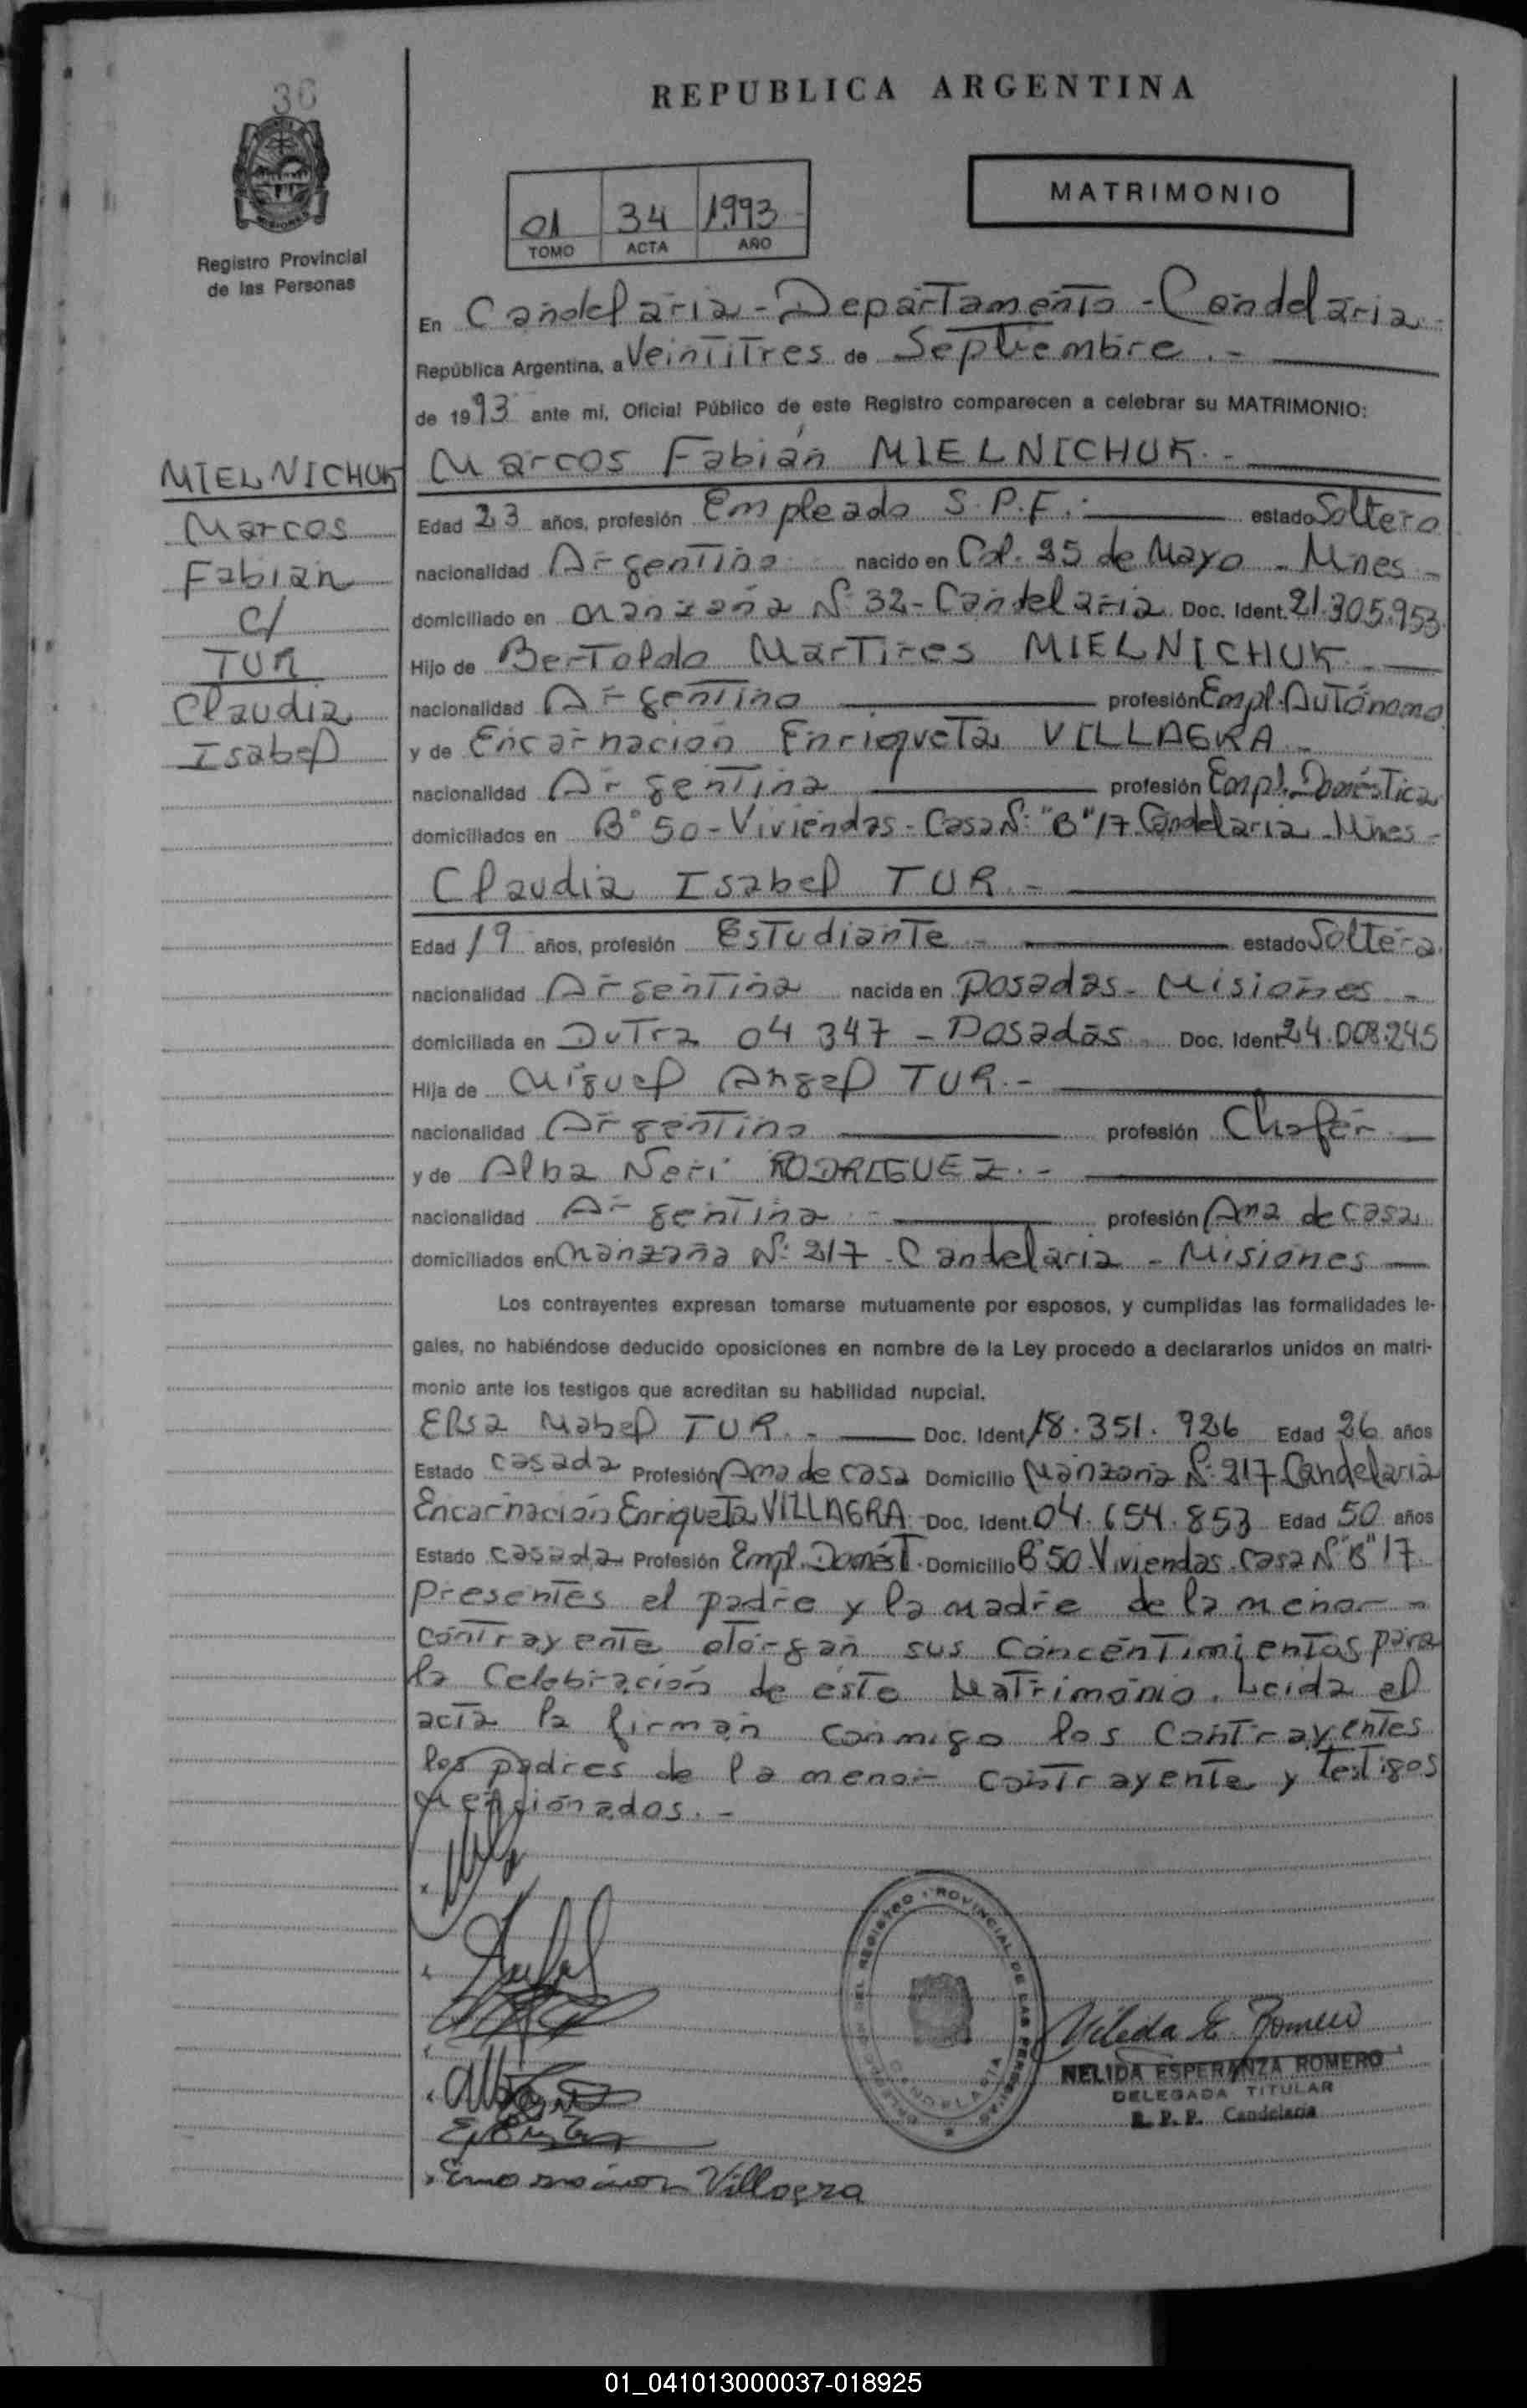 36
REPUBLICA ARGENTINA
MATRIMONIO
01 34 1993
TOMO ACTA AÑO
Registro Provincial
de las Personas
En Candelaria - Departamento - Candelaria -
República Argentina, a Veintitres de Septiembre . -
de 1993 ante mi, Oficial Público de este Registro comparecen a celebrar su MATRIMONIO:
MIELNICHUK
Marcos
Fabian
C/
TUR
Claudia
Isabel
Marcos Fabián MIELNICHUK . -
Edad 23 años, profesión Empleado S.P.F. estado Soltero
nacionalidad Argentino nacido en Col. 25 de Mayo - Mnes -
domiciliado en manzana Nº 32 - Candelaria Doc. Ident. 21.305.953
Hijo de Bertoldo Martires MIELNICHUK
nacionalidad Argentino profesión Empl. Autónomo
y de Encarnación Enriqueta VILLAGRA
nacionalidad Argentina profesión Empl. Doméstica
domiciliados en Bº 50 - Viviendas - Casa Nº "B" 17 Candelaria - Mnes -
Claudia Isabel TUR . -
Edad 19 años, profesión Estudiante - estado Soltera
nacionalidad Argentina nacida en Posadas - Misiones -
domiciliada en Dutra 04 347 - Posadas Doc. Ident. 24.008.245
Hija de Miguel Angel TUR . -
nacionalidad Argentino profesión Chofer
y de Alba Neri RODRIGUEZ . -
nacionalidad Argentina - profesión Ama de casa
domiciliados en Manzana Nº 217 - Candelaria - Misiones
Los contrayentes expresan tomarse mutuamente por esposos, y cumplidas las formalidades le-
gales, no habiéndose deducido oposiciones en nombre de la Ley procedo a declararlos unidos en matri-
monio ante los testigos que acreditan su habilidad nupcial.
Elsa Mabel TUR . - Doc. Ident. 18.351.926 Edad 26 años
Estado casada Profesión Ama de casa Domicilio Manzana Nº 217 Candelaria
Encarnación Enriqueta VILLAGRA Doc. Ident. 04.654.853 Edad 50 años
Estado casada Profesión Empl. Domést. Domicilio Bº 50 Viviendas. Casa Nº "B" 17
Presentes el padre y la madre de la menor -
contrayente otorgan sus concentimientos para
la celebración de éste Matrimonio. Leida el
acta la firman conmigo los contrayentes
los padres de la menor contrayente y testigos
mencionados. -
DEL REGISTRO PROVINCIAL DE LAS PERSONAS
CANDELARIA
Nélida E. Romero
NELIDA ESPERANZA ROMERO
DELEGADA TITULAR
R. P. P. Candelaria
Encarnación Villagra
01_041013000037-018925